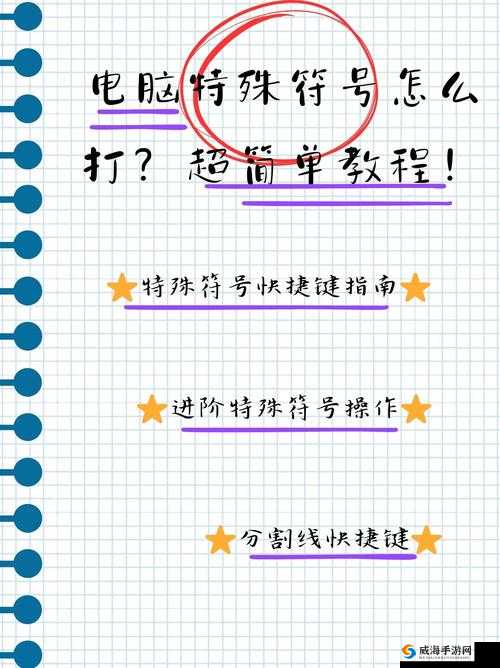 电脑特殊符号怎么
打？超简单教程！
特殊符号快捷键指南
进阶特殊符号操作
分割线快捷键
威海手游网